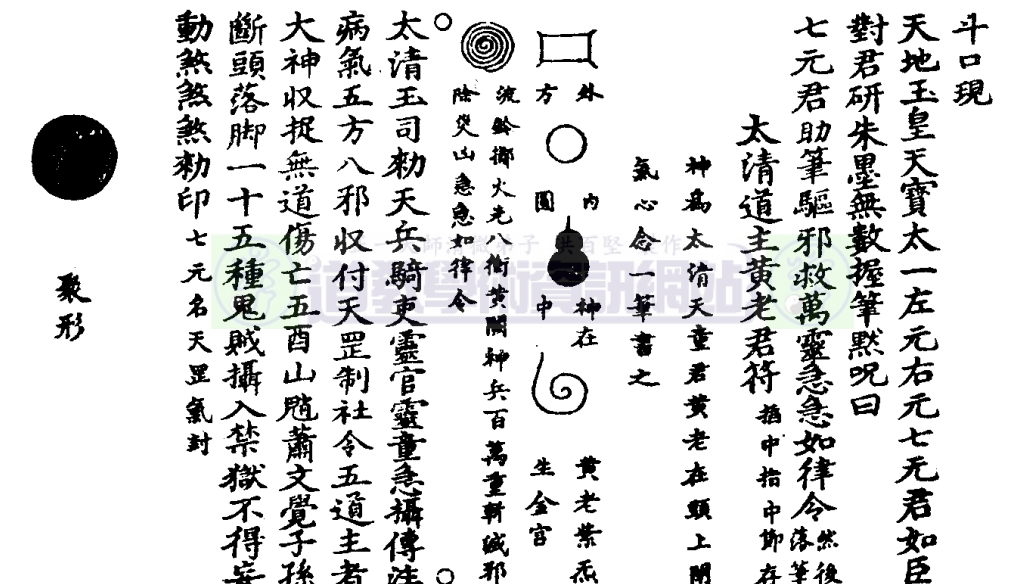 斗口現
天地玉皇天寶太一左元右元七元君如臣
對君研朱墨無數握筆默呪曰
七元君助筆驅邪救萬靈急急如律令然後落筆
太清道主黃老君符 掐中指中節存
神為太清天童君黃老在頭上閉
氣心念一筆書之
外方
內圓
神在中
黃老紫炁生金宮
流鈴擲火光八衝黃閣神兵百萬重斬滅邪
除災山急急如律令
太清玉司勑天兵騎吏靈官靈童急攝傳注
病氣五方八邪收付天罡制社令五道主者
大神収捉無道傷亡五酉山魈蕭文覺子孫
斷頭落脚一十五種鬼賊攝入禁獄不得妄
動煞煞煞勑印 七元名天罡氣封
聚形
道教學術資訊網站